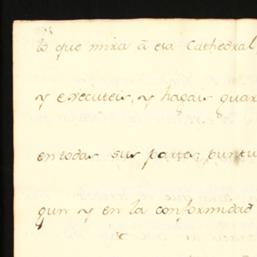 lo que mira â esa Cathedral
y executeis, y hagais guar
en todas sus partes; puntu
gun y en la conformidad